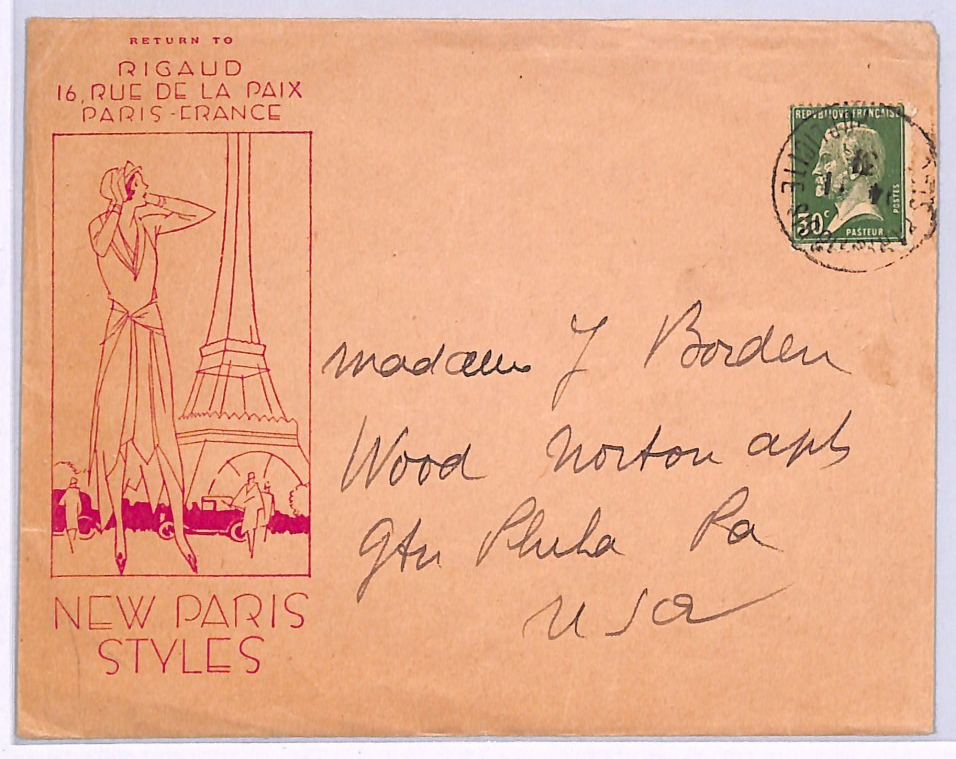 RETURN TO
RIGAUD
16, RUE DE LA PAIX
PARIS - FRANCE
REPUBLIQUE FRANCAISE
POSTES
30c
PASTEUR
Madame J Borden
Wood Norton apts
Gtn Phila Pa
USA
NEW PARIS
STYLES